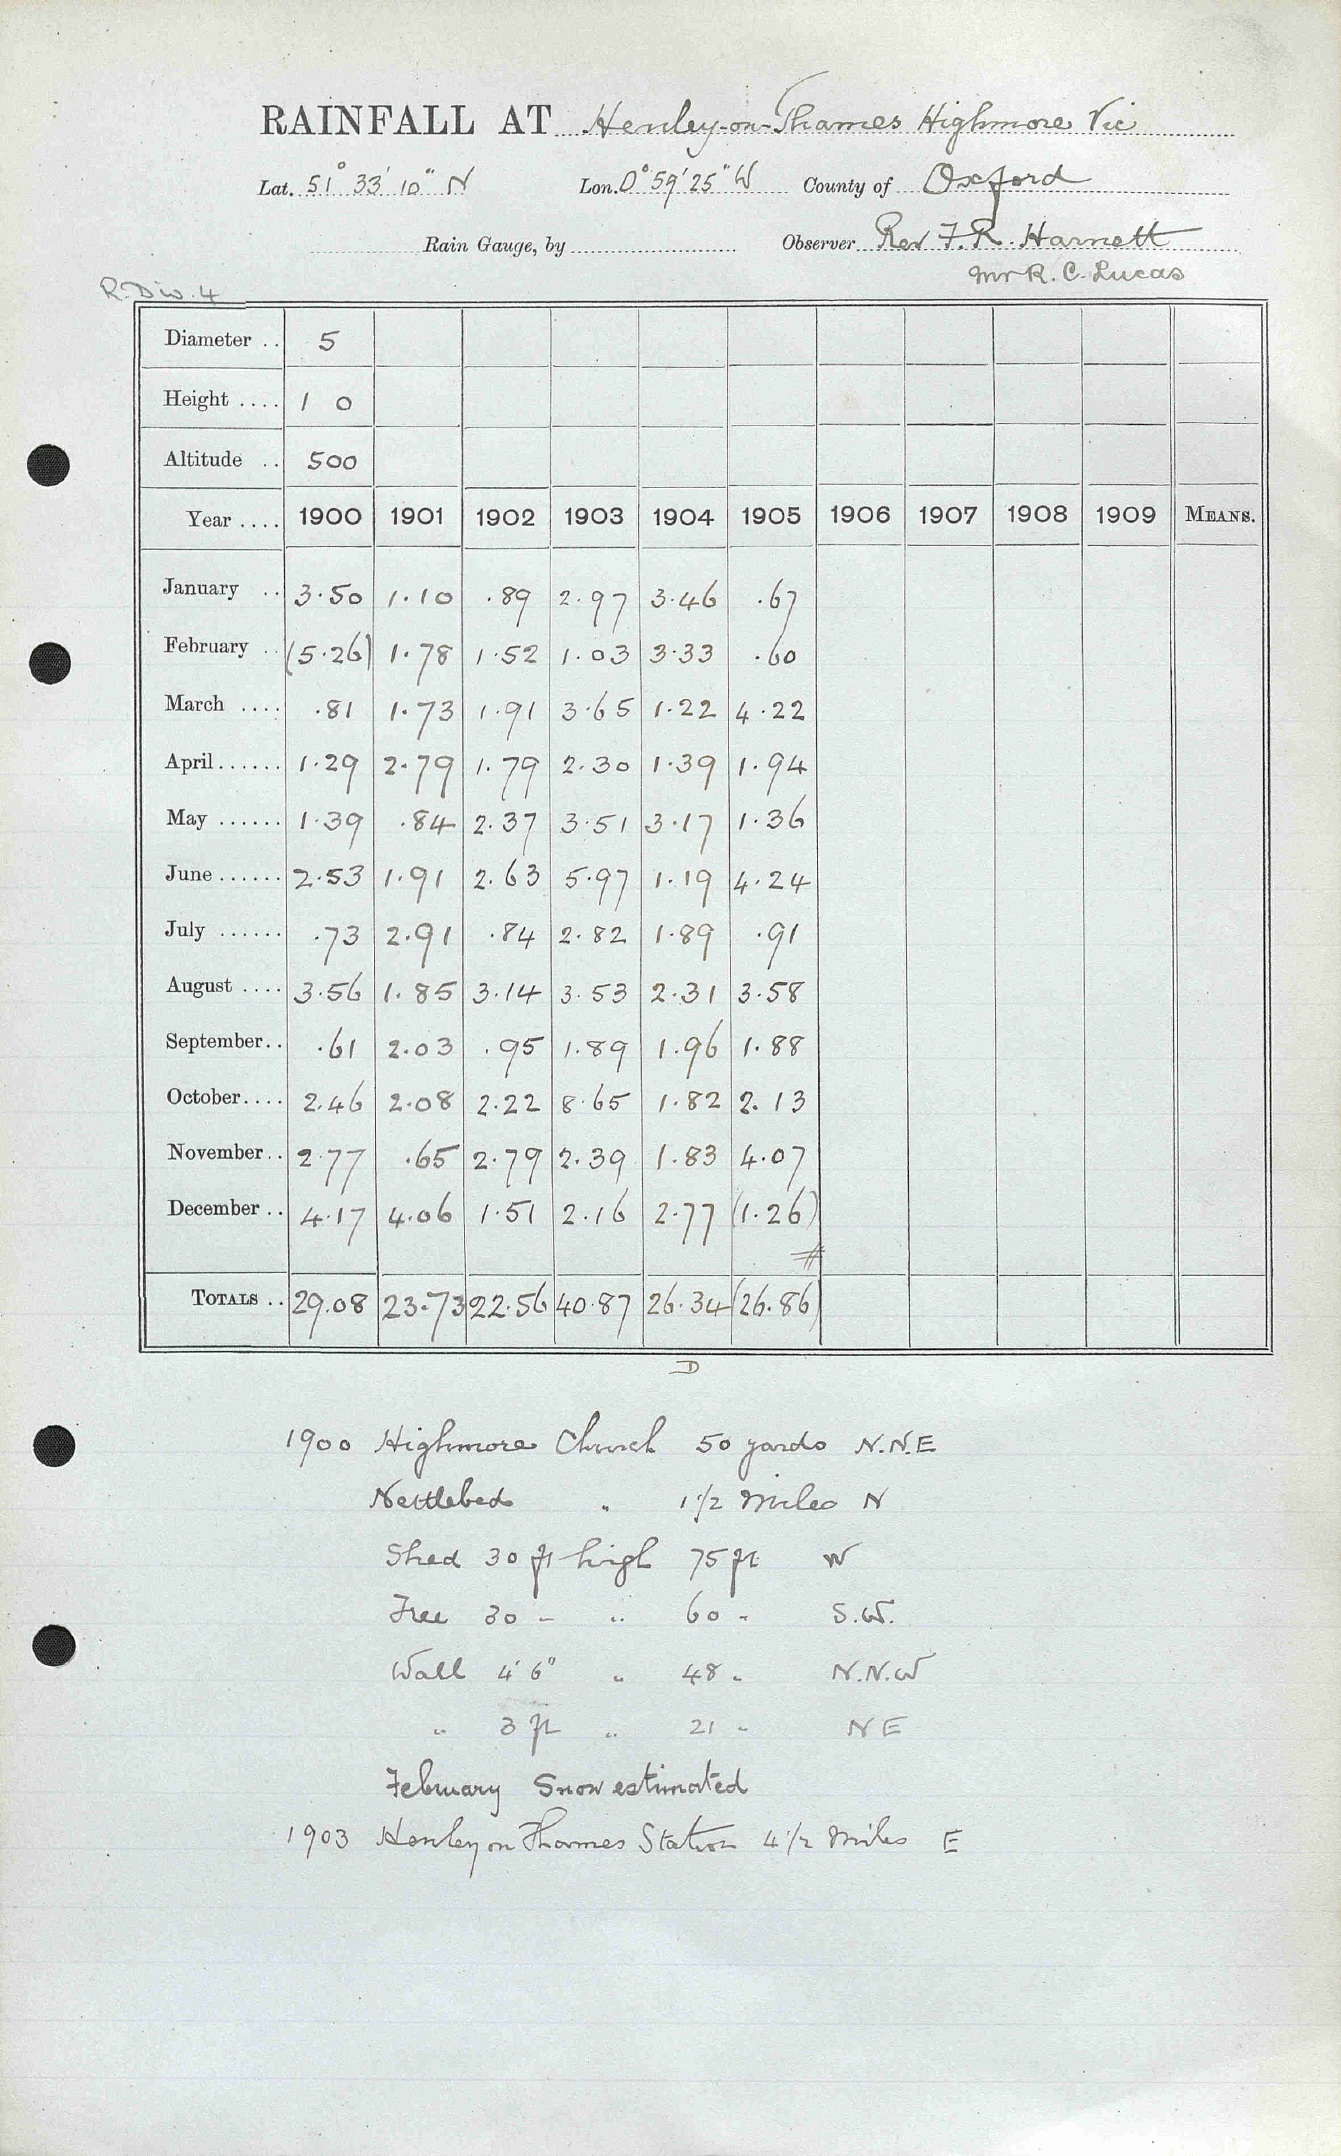 RAINFALL AT Henley-on-Thames Highmore Vic
Lat. 51° 33' 10" N Lon. 0° 59' 25" W County of Oxford
Rain Gauge, by Observer Rev F. R. Harnett
Mr R. C. Lucas
R. Div. 4
Diameter .. 5
Height .... 1 0
Altitude .. 500
Year .... 1900 1901 1902 1903 1904 1905 1906 1907 1908 1909 MEANS.
January .. 3.50 1.10 .89 2.97 3.46 .67
February .. (5.26) 1.78 1.52 1.03 3.33 .60
March .... .81 1.73 1.91 3.65 1.22 4.22
April...... 1.29 2.79 1.79 2.30 1.39 1.94
May ...... 1.39 .84 2.37 3.51 3.17 1.36
June ...... 2.53 1.91 2.63 5.97 1.19 4.24
July ...... .73 2.91 .84 2.82 1.89 .91
August .... 3.56 1.85 3.14 3.53 2.31 3.58
September.. .61 2.03 .95 1.89 1.96 1.88
October.... 2.46 2.08 2.22 8.65 1.82 2.13
November.. 2.77 .65 2.79 2.39 1.83 4.07
December .. 4.17 4.06 1.51 2.16 2.77 (1.26)
#
TOTALS .. 29.08 23.73 22.56 40.87 26.34 (26.86)
D
1900 Highmore Church 50 yards N.N.E
Nettlebed " 1 1/2 Miles N
Shed 30 ft high 75 ft W
Tree 30 " " 60 " S.W.
Wall 4' 6" " 48 " N.N.W
" 3 ft " 21 " NE
February Snow estimated
1903 Henley on Thames Station 4 1/2 Miles E